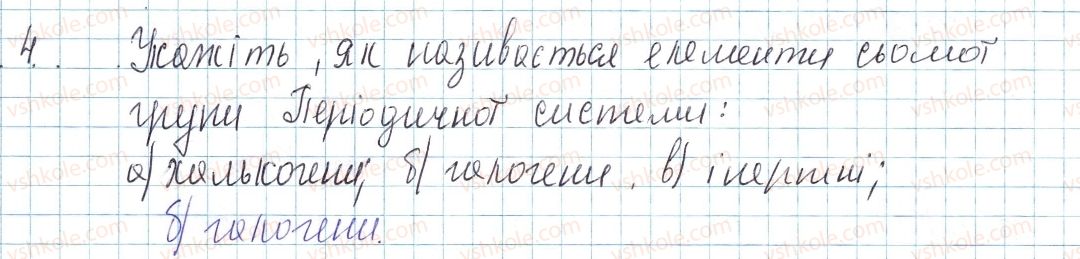 4. Укажіть, як називається елементи сьомої
групи Періодичної системи:
а) халькогени; б) галогени. в) інертні;
б) галогени.